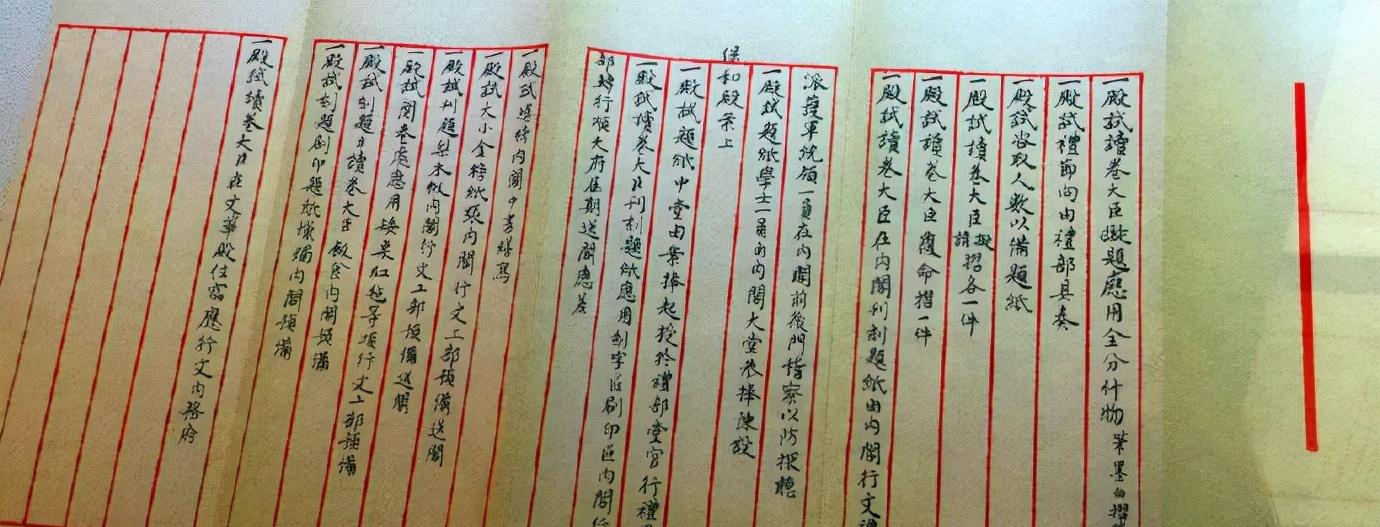 一殿試讀卷大臣擬題應用全分什物筆墨白摺
一殿試禮節向由禮部具奏
一殿試咨取人數以備題紙
一殿試讀卷大臣擬請摺各一件
一殿試讀卷大臣覆命摺一件
一殿試讀卷大臣在內閣刊刻題紙由內閣行文
派護軍統領一員在內閣前後門稽察以防探聽
一殿試題紙學士一員由內閣大堂恭捧陳設
保和殿案上
一殿試題紙中堂由案捧起授於禮部堂官行禮
一殿試讀卷大臣刊刻題紙應用刻字匠刷印匠內閣
部轉行順天府屆期送閣應差
一殿試 內閣中書繕寫
一殿試大小金榜紙張內閣行文工部預備送閣
一殿試刊題梨木板內閣行文工部預備送閣
一殿試閱卷處應用矮桌紅毡等項行文工部預備
一殿試刻題日讀卷大臣飯食內閣預備
一殿試刻題刷印題紙 內閣預備
一殿試讀卷大臣在文華殿住宿應行文內務府